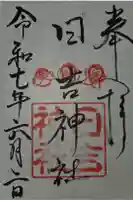 奉拝
日吉神社
令和七年六月二日